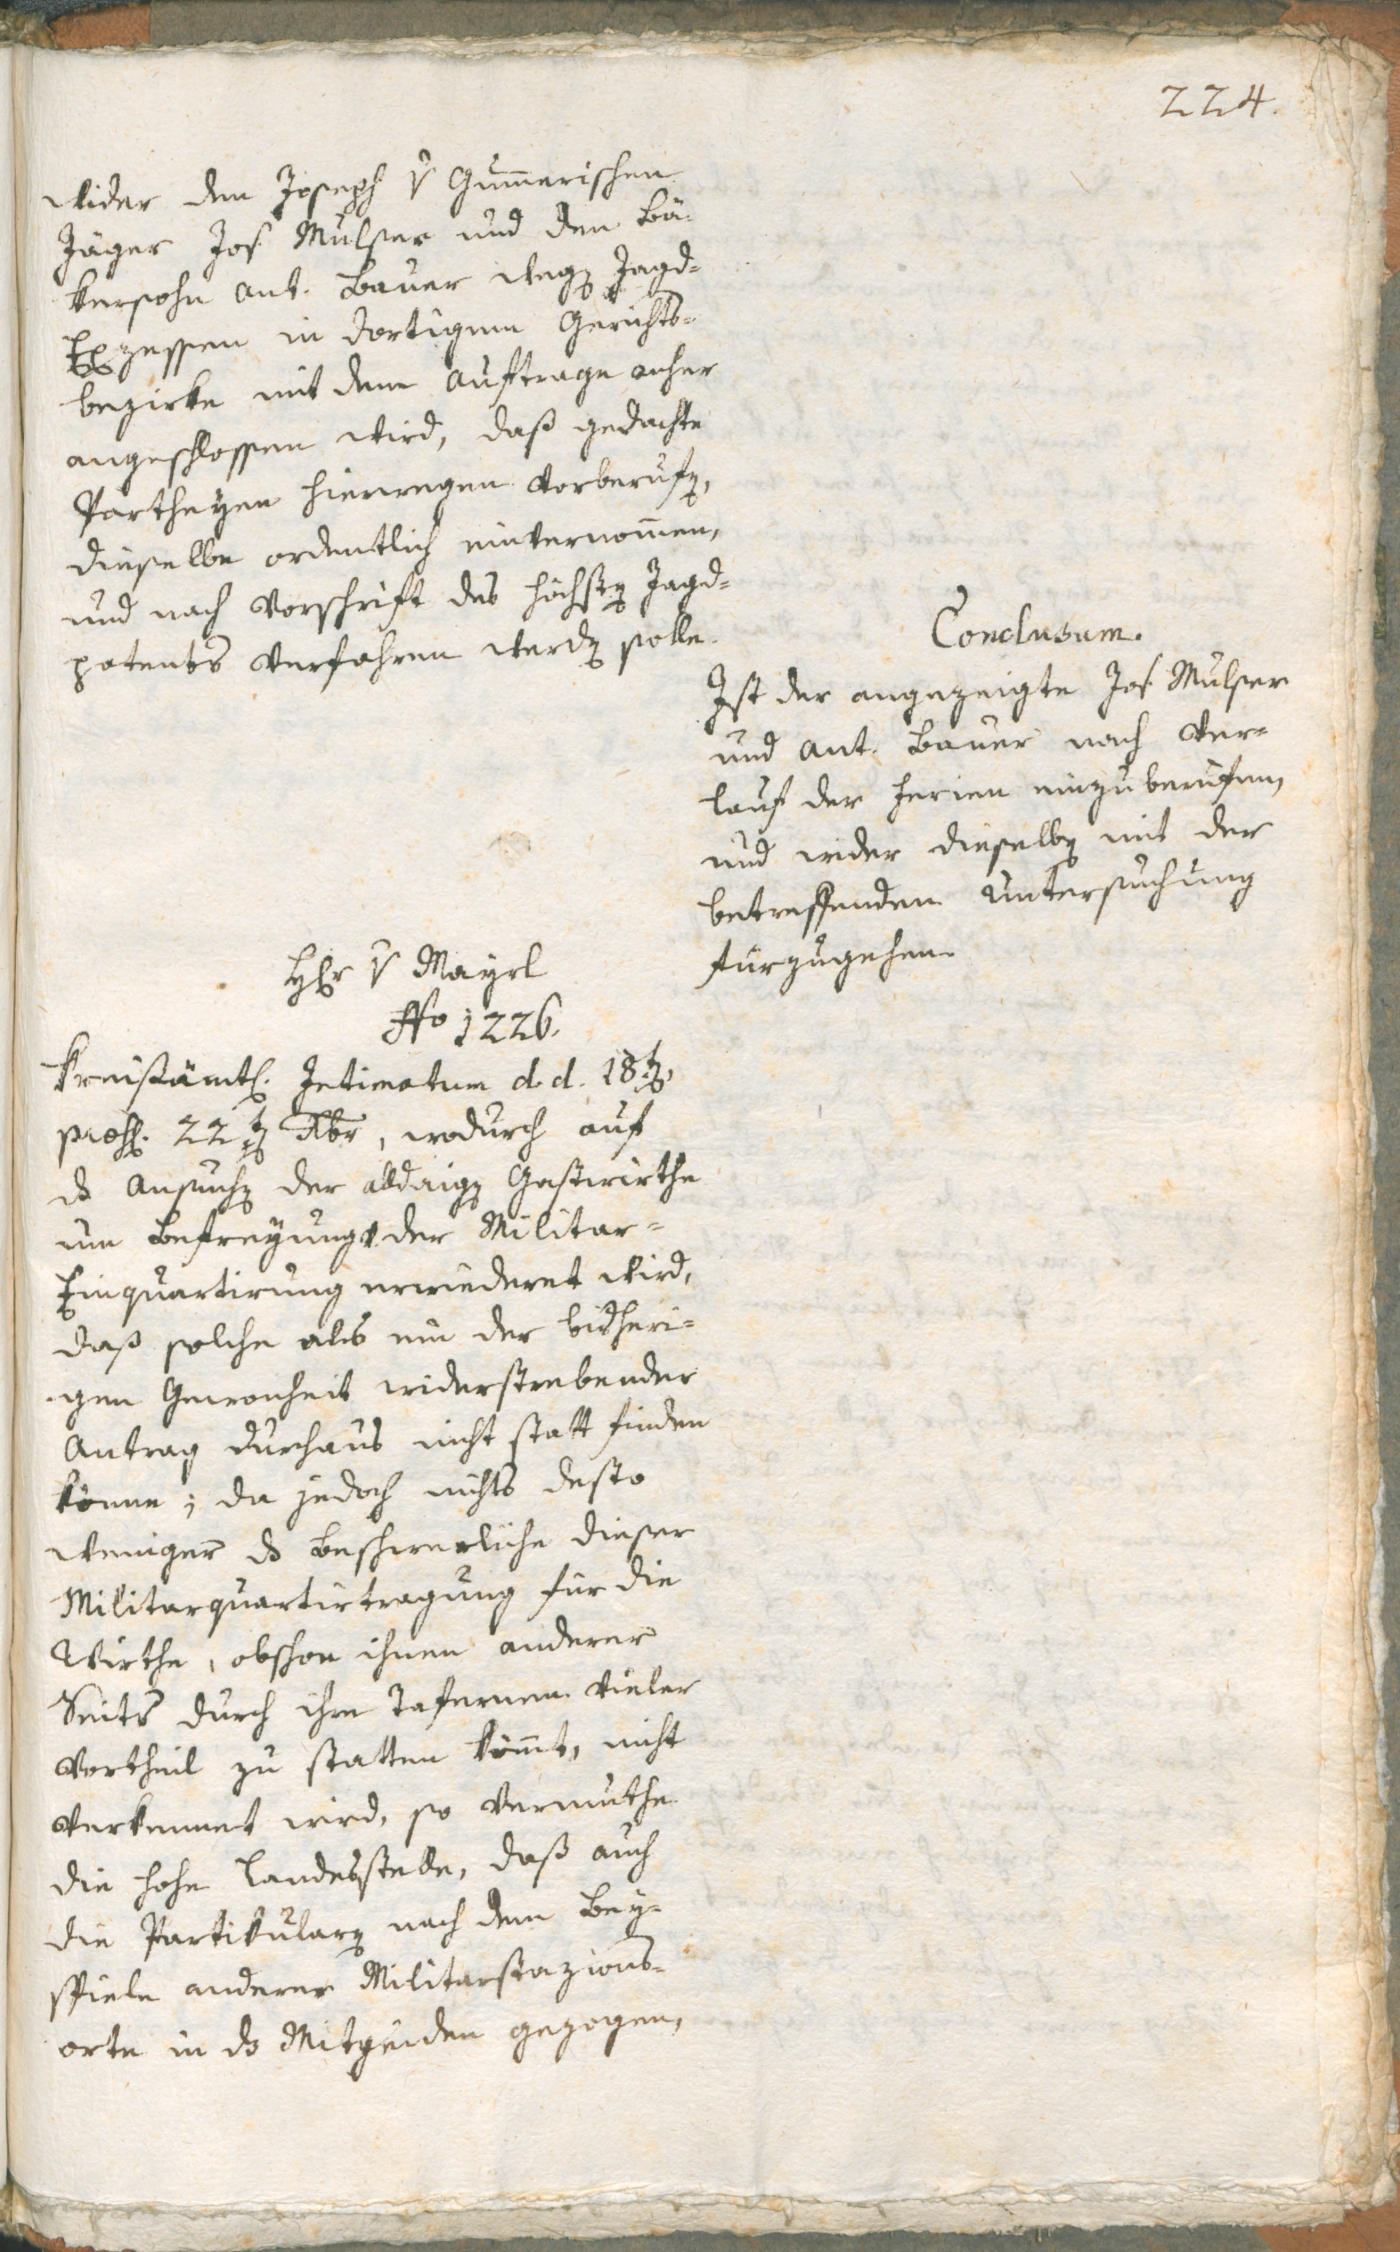 224.
wider den Joseph v Gummerischen
Jäger Jos Mulser und den Bä-
kersohn Ant. Bauer weg Jagd-
Exzessen in dortigem Gerichts-
bezirke mit dem Auftrage anher
angeschlossen wird, daß gedachte
Partheyen hierwegen vorberufen,
dieselbe ordentlich einvernommen,
und nach Vorschrift des höchsten Jagd-
patents verfahren werden solle.
Conclusum.
Ist der angezeigte Jos Mulser
und Ant. Bauer nach Ver-
lauf der Ferien einzuberufen,
und wider dieselben mit der
betreffenden Untersuchung
fürzugehen.
Hr v Mayrl
No 1226.
Kreisämtl. Intimatum d. d. 18ten,
præs. 22ten xbr, wodurch auf
ds Ansuchen der alldaigen Gastwirthe
um Befreyung der Militar-
Einquartirung erwiederet wird,
daß solche als ein der bisheri-
gen Gewonheit widerstrebender
Antrag durchaus nicht statt finden
könne; da jedoch nichts desto
weniger ds Beschwerliche dieser
Militarquartirtragung für die
Wirthe, obschon ihnen anderer
Seits durch ihre Tafernen vieler
Vortheil zu statten kömmt, nicht
verkennet wird, so vermuthe
die hohe Landesstelle, daß auch
die Partikularen nach dem Bey-
spiele anderer Militarstazions-
orte in ds Mitleiden gezogen,